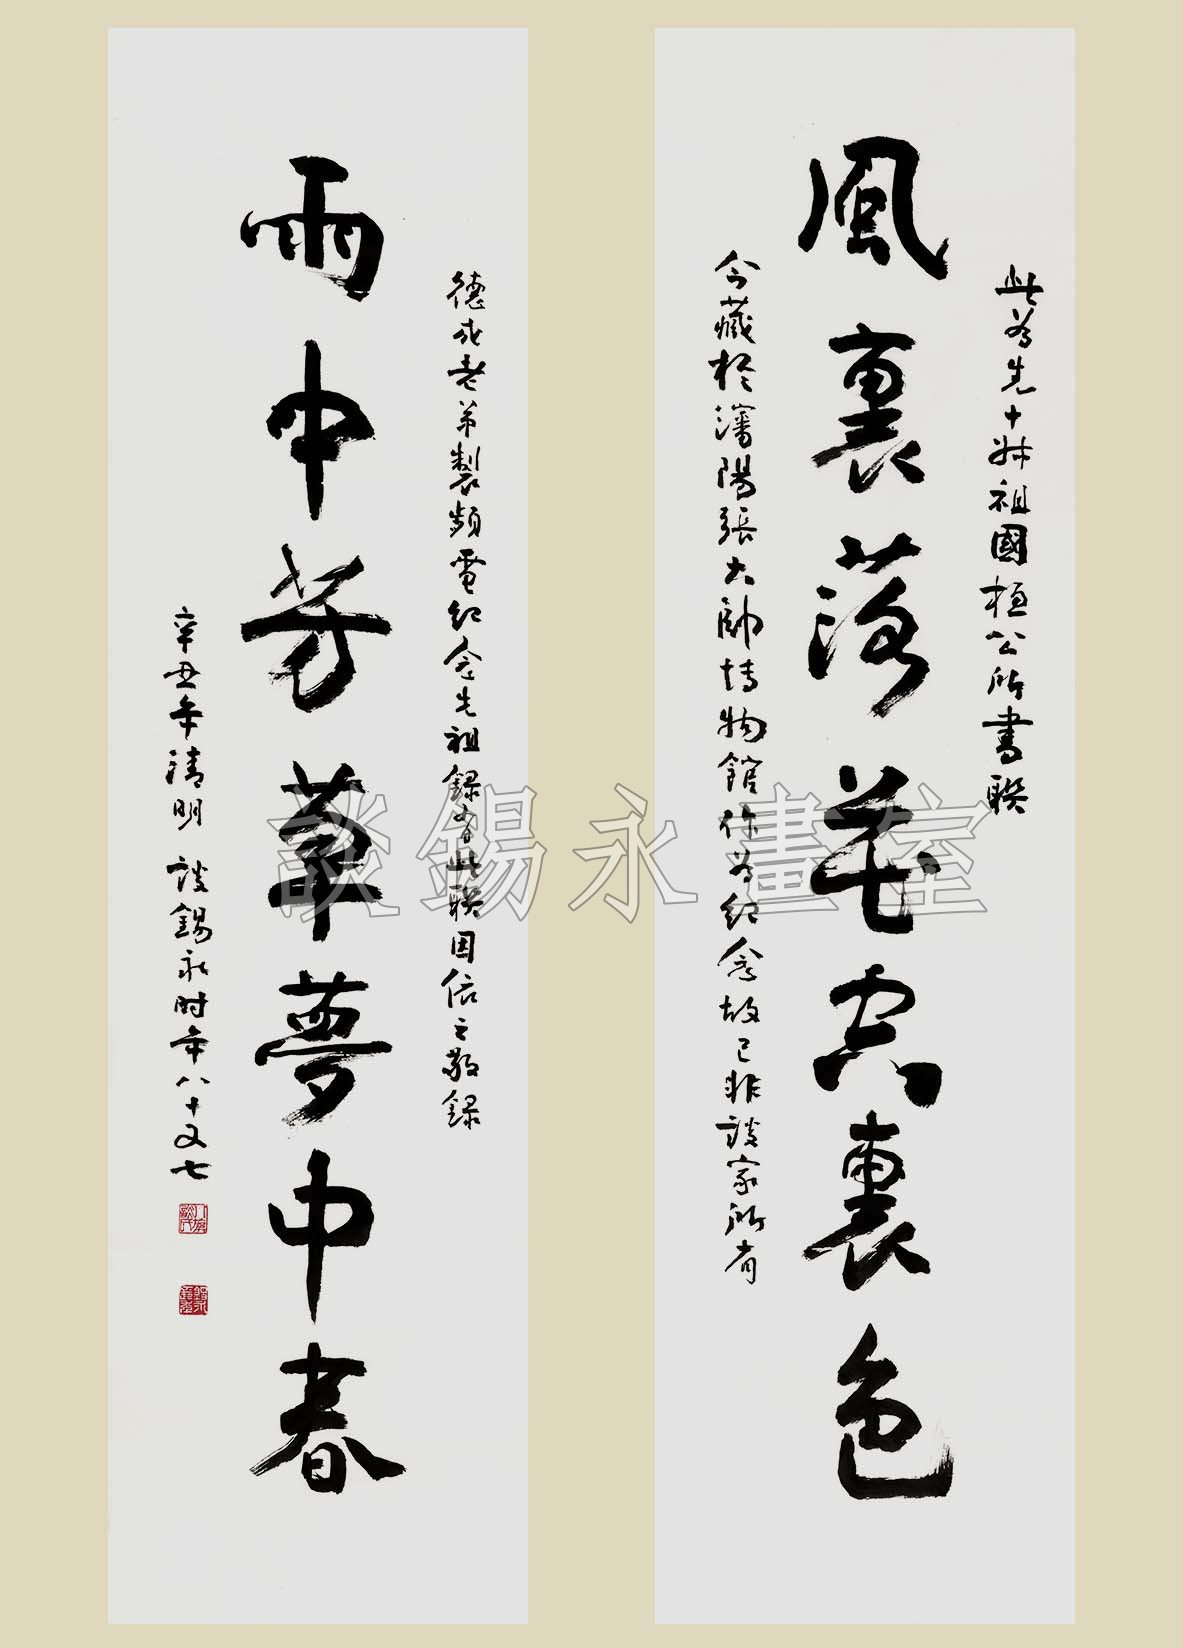 此為先十姊祖國桓公所書聯
風裏落花空裏色
今藏於瀋陽張大帥博物館作為紀念故已非談家所有
德成老弟製頻電紀念先祖錄有此聯因依之敬錄
雨中芳草夢中春
辛丑年清明 談錫永时年八十又七
談錫永畫室